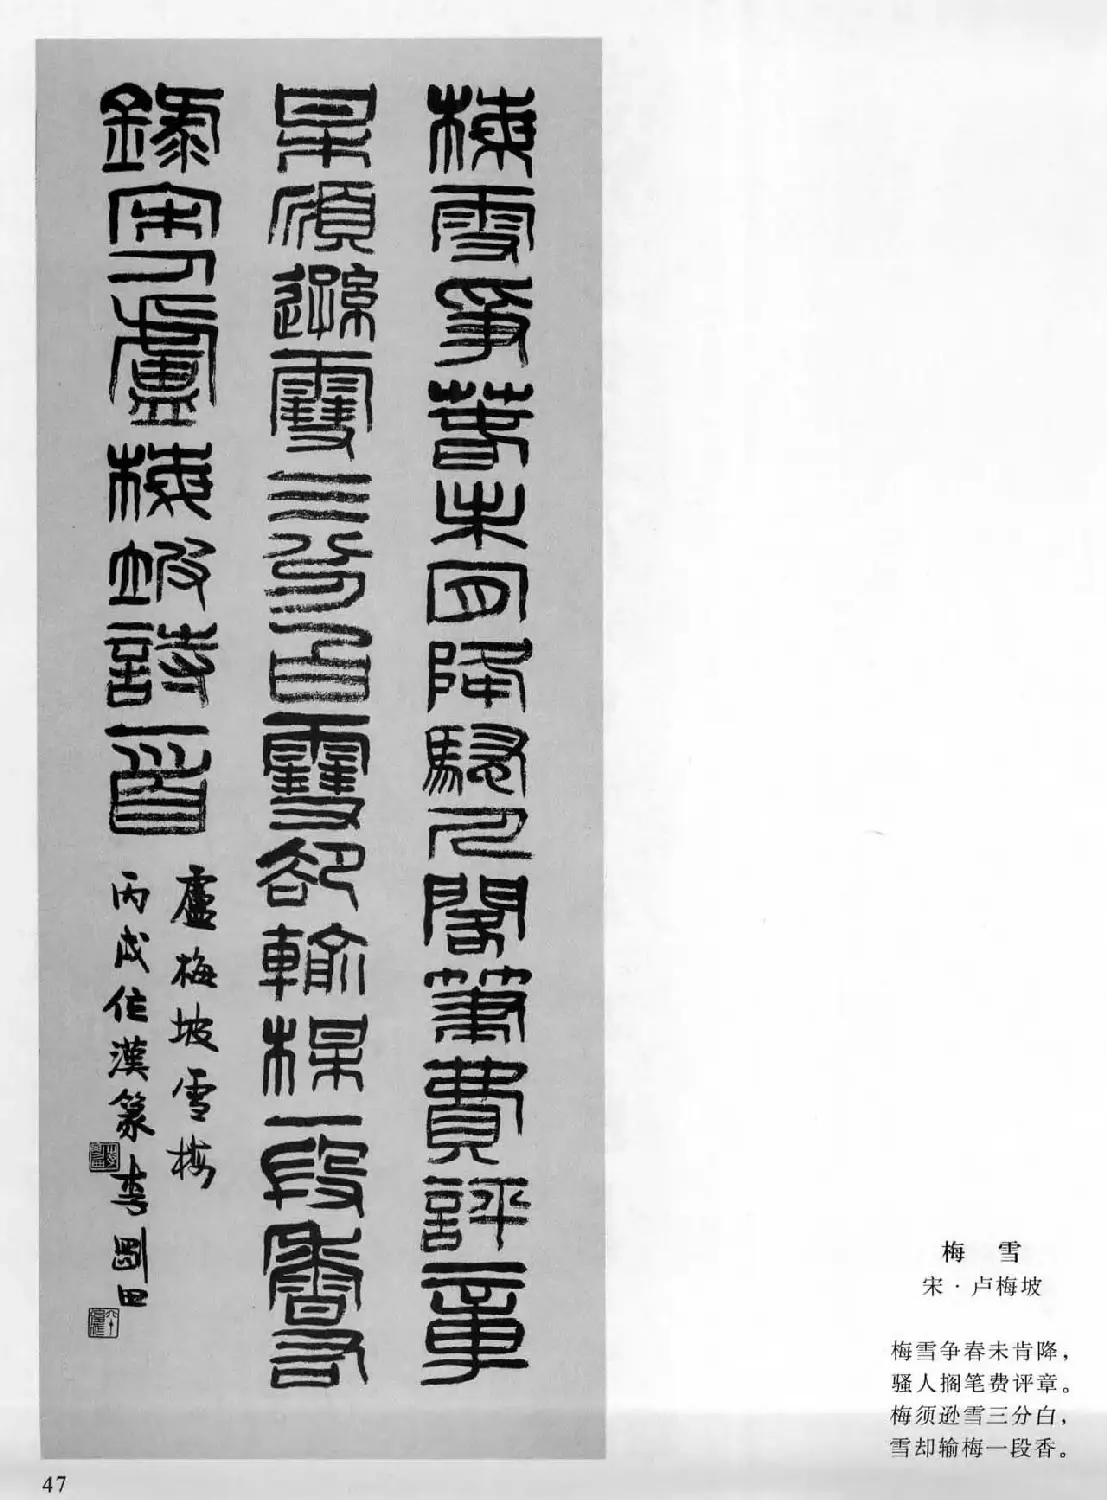 梅雪爭春未肯降騷人閣筆費評章
梅須遜雪三分白雪卻輸梅一段香
錄宋盧梅坡詩一首
盧梅坡雪梅
丙戌作漢篆李剛田
梅 雪
宋·卢梅坡
梅雪争春未肯降，
骚人搁笔费评章。
梅须逊雪三分白，
雪却输梅一段香。
47